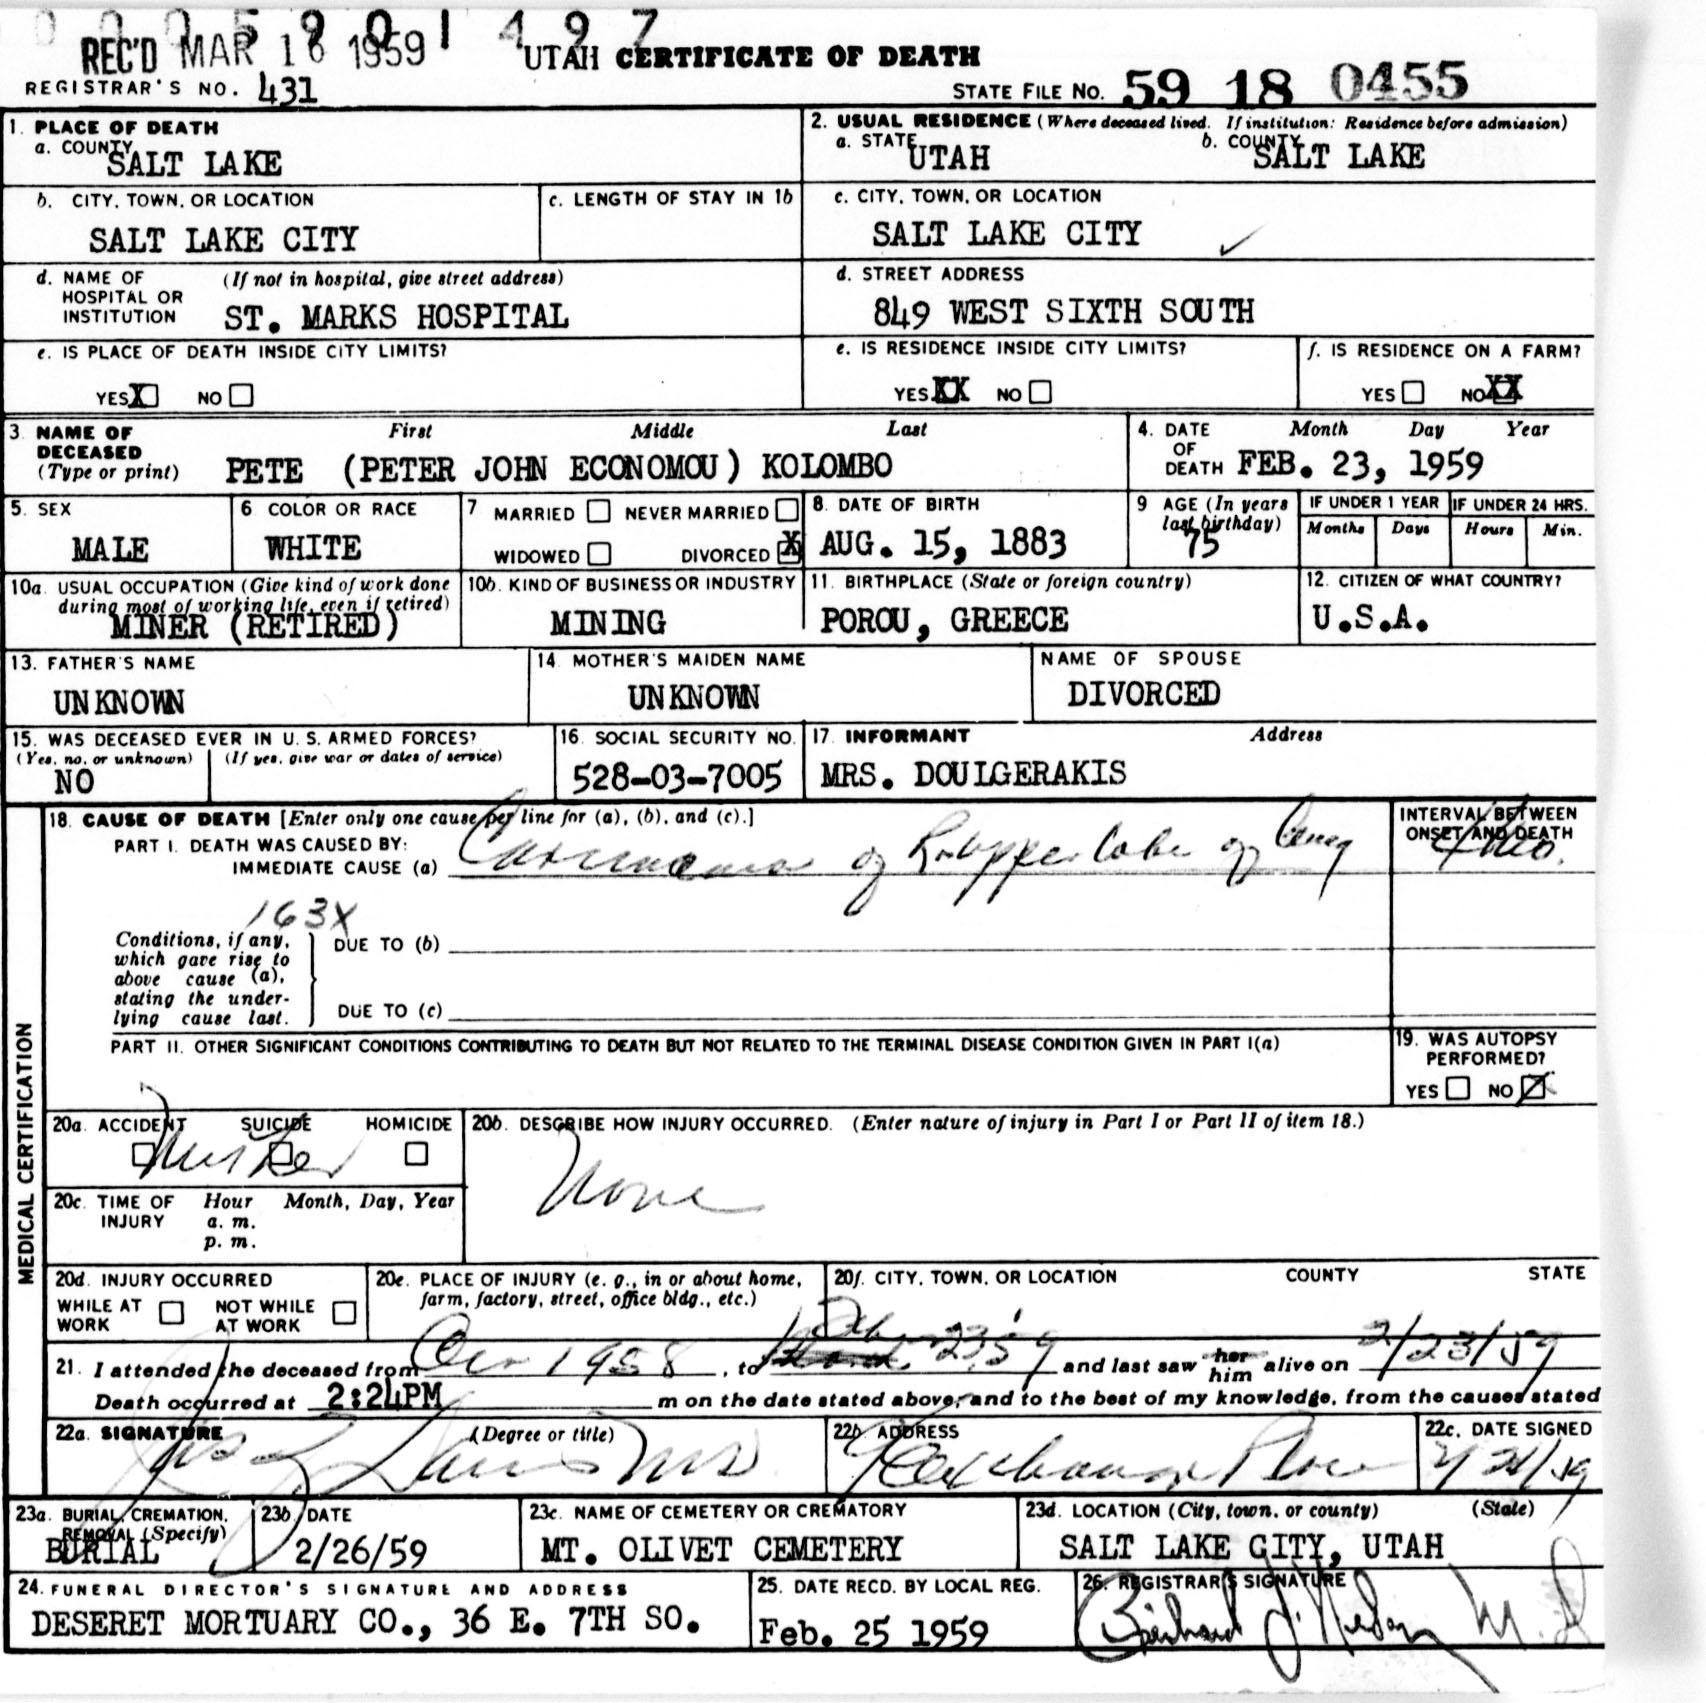 0005901497
REC'D MAR 16 1959 UTAH CERTIFICATE OF DEATH
REGISTRAR'S NO. 431
STATE FILE NO. 59 18 0455
1. PLACE OF DEATH
a. COUNTY SALT LAKE
2. USUAL RESIDENCE (Where deceased lived. If institution: Residence before admission)
a. STATE UTAH b. COUNTY SALT LAKE
b. CITY, TOWN, OR LOCATION SALT LAKE CITY
c. LENGTH OF STAY IN 1b
c. CITY, TOWN, OR LOCATION SALT LAKE CITY
d. NAME OF HOSPITAL OR INSTITUTION (If not in hospital, give street address) ST. MARKS HOSPITAL
d. STREET ADDRESS 849 WEST SIXTH SOUTH
e. IS PLACE OF DEATH INSIDE CITY LIMITS?
YES X NO
e. IS RESIDENCE INSIDE CITY LIMITS?
YES XX NO
f. IS RESIDENCE ON A FARM?
YES NO XX
3. NAME OF DECEASED (Type or print) First Middle Last
PETE (PETER JOHN ECONOMOU) KOLOMBO
4. DATE OF DEATH Month Day Year
FEB. 23, 1959
5. SEX MALE
6 COLOR OR RACE WHITE
7 MARRIED NEVER MARRIED
WIDOWED DIVORCED X
8. DATE OF BIRTH AUG. 15, 1883
9 AGE (In years last birthday) 75
IF UNDER 1 YEAR Months Days
IF UNDER 24 HRS. Hours Min.
10a. USUAL OCCUPATION (Give kind of work done during most of working life, even if retired)
MINER (RETIRED)
10b. KIND OF BUSINESS OR INDUSTRY MINING
11. BIRTHPLACE (State or foreign country) POROU, GREECE
12. CITIZEN OF WHAT COUNTRY? U.S.A.
13. FATHER'S NAME UNKNOWN
14. MOTHER'S MAIDEN NAME UNKNOWN
NAME OF SPOUSE DIVORCED
15. WAS DECEASED EVER IN U.S. ARMED FORCES?
(Yes, no, or unknown) (If yes, give war or dates of service)
NO
16. SOCIAL SECURITY NO. 528-03-7005
17. INFORMANT Address
MRS. DOULGERAKIS
MEDICAL CERTIFICATION
18. CAUSE OF DEATH [Enter only one cause per line for (a), (b), and (c).]
PART I. DEATH WAS CAUSED BY:
IMMEDIATE CAUSE (a) Carcinoma of R. upper lobe of lung
INTERVAL BETWEEN ONSET AND DEATH
mo.
163X
Conditions, if any, which gave rise to above cause (a), stating the underlying cause last.
DUE TO (b)
DUE TO (c)
PART II. OTHER SIGNIFICANT CONDITIONS CONTRIBUTING TO DEATH BUT NOT RELATED TO THE TERMINAL DISEASE CONDITION GIVEN IN PART I(a)
19. WAS AUTOPSY PERFORMED?
YES NO X
20a. ACCIDENT SUICIDE HOMICIDE
20b. DESCRIBE HOW INJURY OCCURRED. (Enter nature of injury in Part I or Part II of item 18.)
None
20c. TIME OF INJURY Hour Month, Day, Year
a. m.
p. m.
20d. INJURY OCCURRED
WHILE AT WORK NOT WHILE AT WORK
20e. PLACE OF INJURY (e. g., in or about home, farm, factory, street, office bldg., etc.)
20f. CITY, TOWN, OR LOCATION COUNTY STATE
21. I attended the deceased from 1958, to Feb 23, 59 and last saw her him alive on 2/23/59
Death occurred at 2:24PM m on the date stated above, and to the best of my knowledge, from the causes stated
22a. SIGNATURE (Degree or title)
22b. ADDRESS Exchange Place
22c. DATE SIGNED
23a. BURIAL, CREMATION, REMOVAL (Specify) BURIAL
23b. DATE 2/26/59
23c. NAME OF CEMETERY OR CREMATORY MT. OLIVET CEMETERY
23d. LOCATION (City, town, or county) (State)
SALT LAKE CITY, UTAH
24. FUNERAL DIRECTOR'S SIGNATURE AND ADDRESS
DESERET MORTUARY CO., 36 E. 7TH SO.
25. DATE RECD. BY LOCAL REG. Feb. 25 1959
26. REGISTRAR'S SIGNATURE